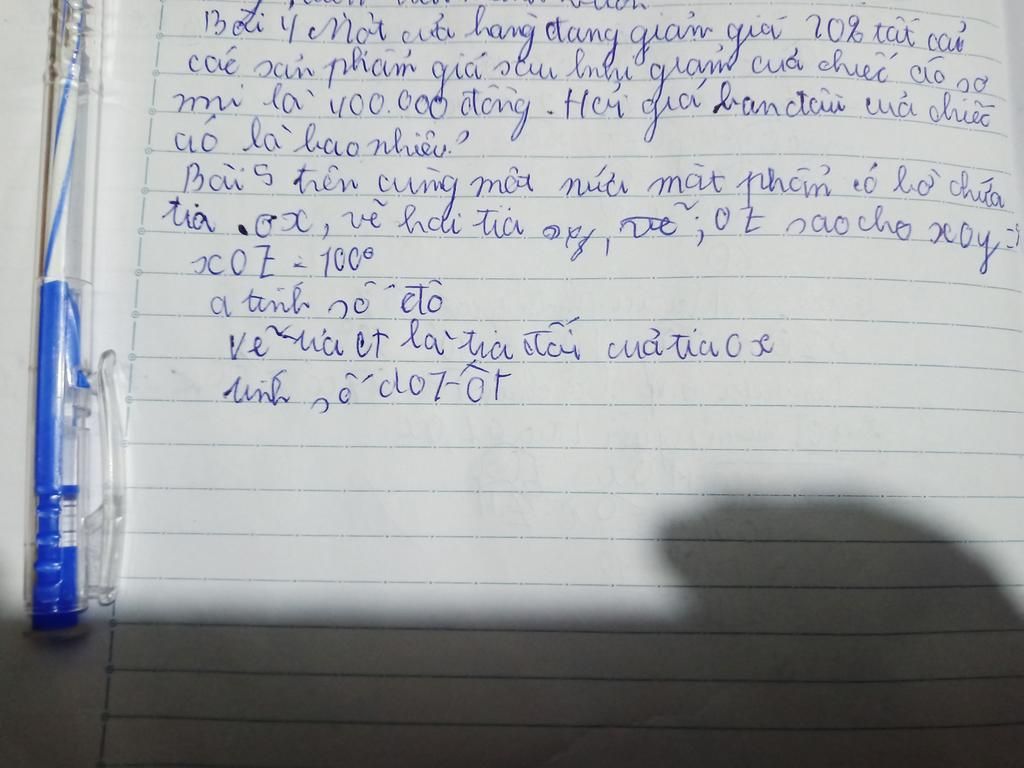 Bài 4 Một cửa hàng đang giảm giá 20% tất cả
các sản phẩm giá sau khi giảm của chiếc áo sơ
mi là 400.000 đồng. Hỏi giá ban đầu của chiếc
áo là bao nhiêu?
Bài 5 trên cùng một nửa mặt phẩn có bờ chứa
tia OX, vẽ hai tia vẽ; OZ sao cho xOy =
xOZ = 100°
a tính số đô
vẽ tia là tia đối của tia Ox
tính số đo